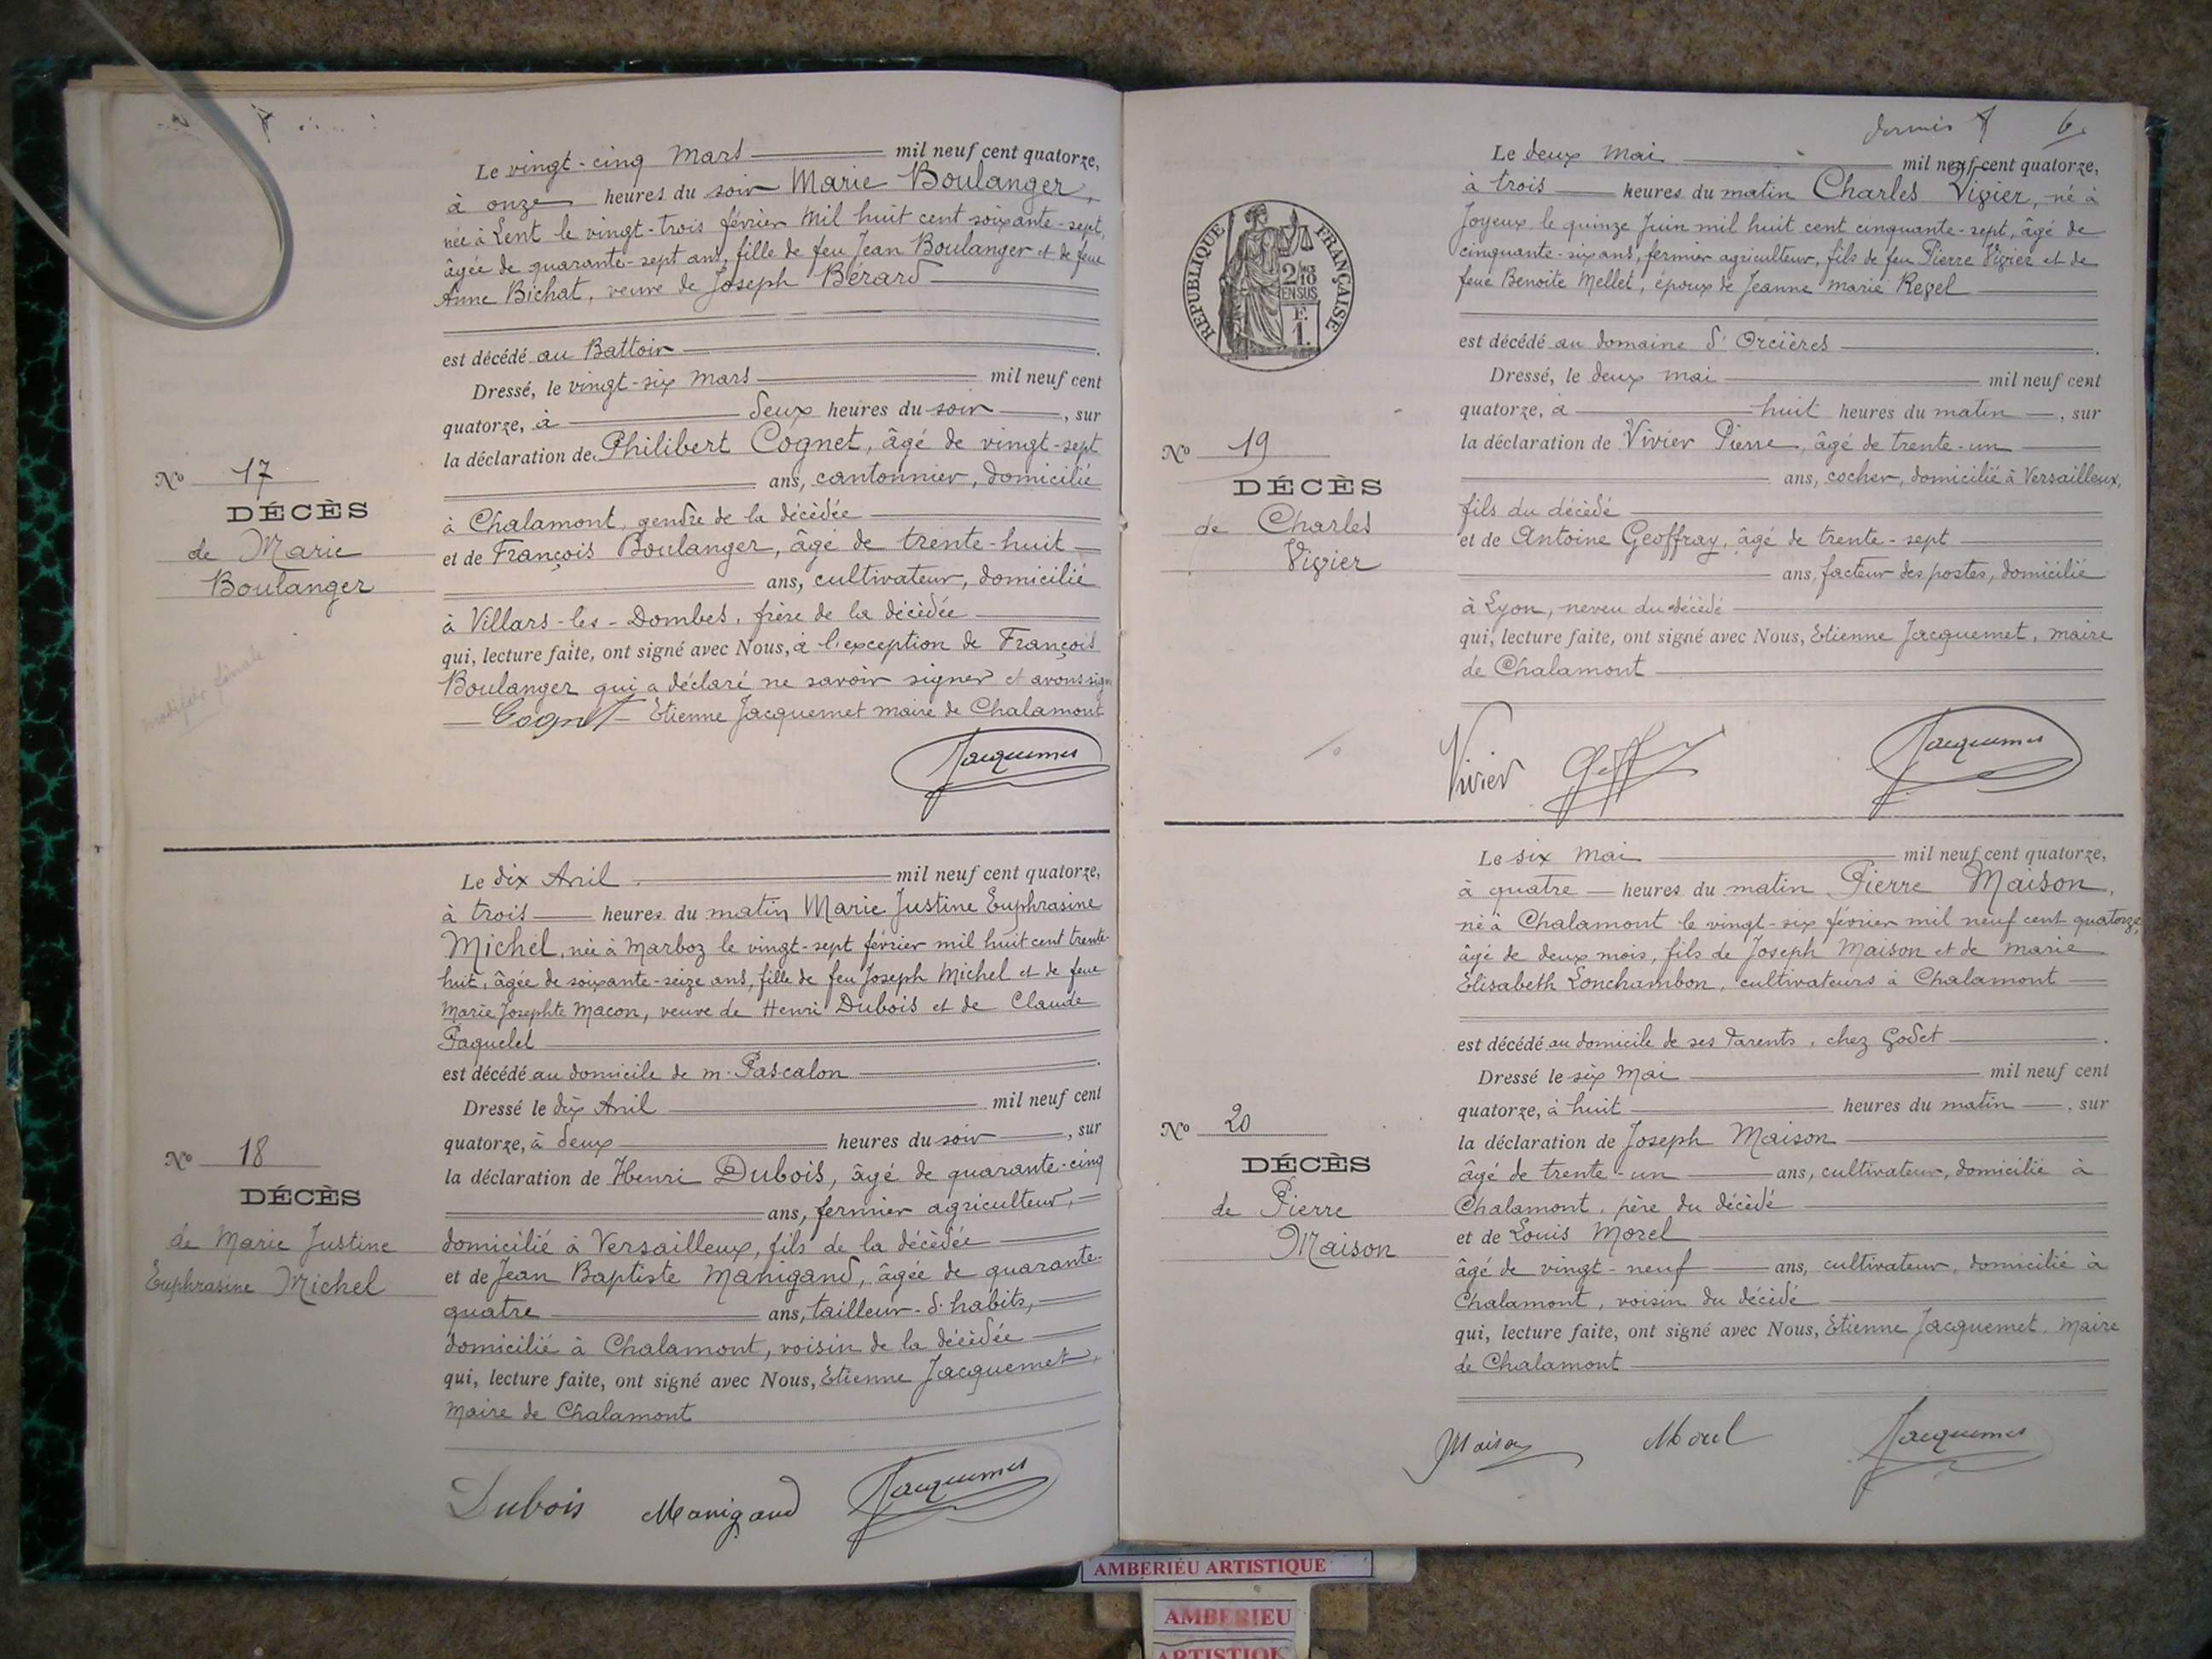 Le vingt-cinq Mars mil neuf cent quatorze,
à onze heures du soir Marie Boulanger,
née à Lent le vingt-trois février mil huit cent soixante-sept,
âgée de quarante-sept ans, fille de feu Jean Boulanger et de feue
Anne Bichat, veuve de Joseph Bérard
est décédé au Battoir
Dressé, le vingt-six Mars mil neuf cent
quatorze, à deux heures du soir, sur
la déclaration de Philibert Cognet, âgé de vingt-sept
ans, cantonnier, domicilié
à Chalamont, gendre de la décédée
et de François Boulanger, âgé de trente-huit
ans, cultivateur, domicilié
à Villars-les-Dombes, frère de la décédée
qui, lecture faite, ont signé avec Nous, à l'exception de François
Boulanger qui a déclaré ne savoir signer et avons signé
Cognet Etienne Jacquemet maire de Chalamont
Jacquemet
No 17
DÉCÈS
de Marie
Boulanger
modifier
Le dix Avril mil neuf cent quatorze,
à trois heures du matin Marie Justine Euphrasine
Michel, née à Marboz le vingt-sept février mil huit cent trente-
huit, âgée de soixante-seize ans, fille de feu Joseph Michel et de feue
Marie Josephte Macon, veuve de Henri Dubois et de Claude
Paquelet
est décédé au domicile de m. Pascalon
Dressé le dix Avril mil neuf cent
quatorze, à deux heures du soir, sur
la déclaration de Henri Dubois, âgé de quarante-cinq
ans, fermier agriculteur,
domicilié à Versailleux, fils de la décédée
et de Jean Baptiste Manigand, âgée de quarante-
quatre ans, tailleur-d'habits,
domicilié à Chalamont, voisin de la décédée
qui, lecture faite, ont signé avec Nous, Etienne Jacquemet,
Maire de Chalamont
Dubois Manigand Jacquemet
No 18
DÉCÈS
de Marie Justine
Euphrasine Michel
6
RÉPUBLIQUE FRANÇAISE
2/10
EN SUS
F.
1.
Le deux Mai mil neuf cent quatorze,
à trois heures du matin Charles Vivier, né à
Joyeux le quinze Juin mil huit cent cinquante-sept, âgé de
cinquante-six ans, fermier agriculteur, fils de feu Pierre Vivier et de
feue Benoite Mellet, époux de Jeanne Marie Revel
est décédé au domaine d'Orcières
Dressé, le deux mai mil neuf cent
quatorze, à huit heures du matin, sur
la déclaration de Vivier Pierre, âgé de trente-un
ans, cocher, domicilié à Versailleux,
fils du décédé
et de Antoine Geoffray, âgé de trente-sept
ans, facteur des postes, domicilié
à Lyon, neveu du décédé
qui, lecture faite, ont signé avec Nous, Etienne Jacquemet, maire
de Chalamont
Vivier Jacquemet
No 19
DÉCÈS
de Charles
Vivier
Le six Mai mil neuf cent quatorze,
à quatre heures du matin Pierre Maison,
né à Chalamont le vingt-six février mil neuf cent quatorze,
âgé de deux mois, fils de Joseph Maison et de marie
Elisabeth Lonchambon, cultivateurs à Chalamont
est décédé au domicile de ses Parents, chez Godet
Dressé le six Mai mil neuf cent
quatorze, à huit heures du matin, sur
la déclaration de Joseph Maison
âgé de trente-un ans, cultivateur, domicilié à
Chalamont, père du décédé
et de Louis Morel
âgé de vingt-neuf ans, cultivateur, domicilié à
Chalamont, voisin du décédé
qui, lecture faite, ont signé avec Nous, Etienne Jacquemet, Maire
de Chalamont
Maison Morel Jacquemet
No 20
DÉCÈS
de Pierre
Maison
AMBERIEU ARTISTIQUE
AMBERIEU
ARTISTIQUE